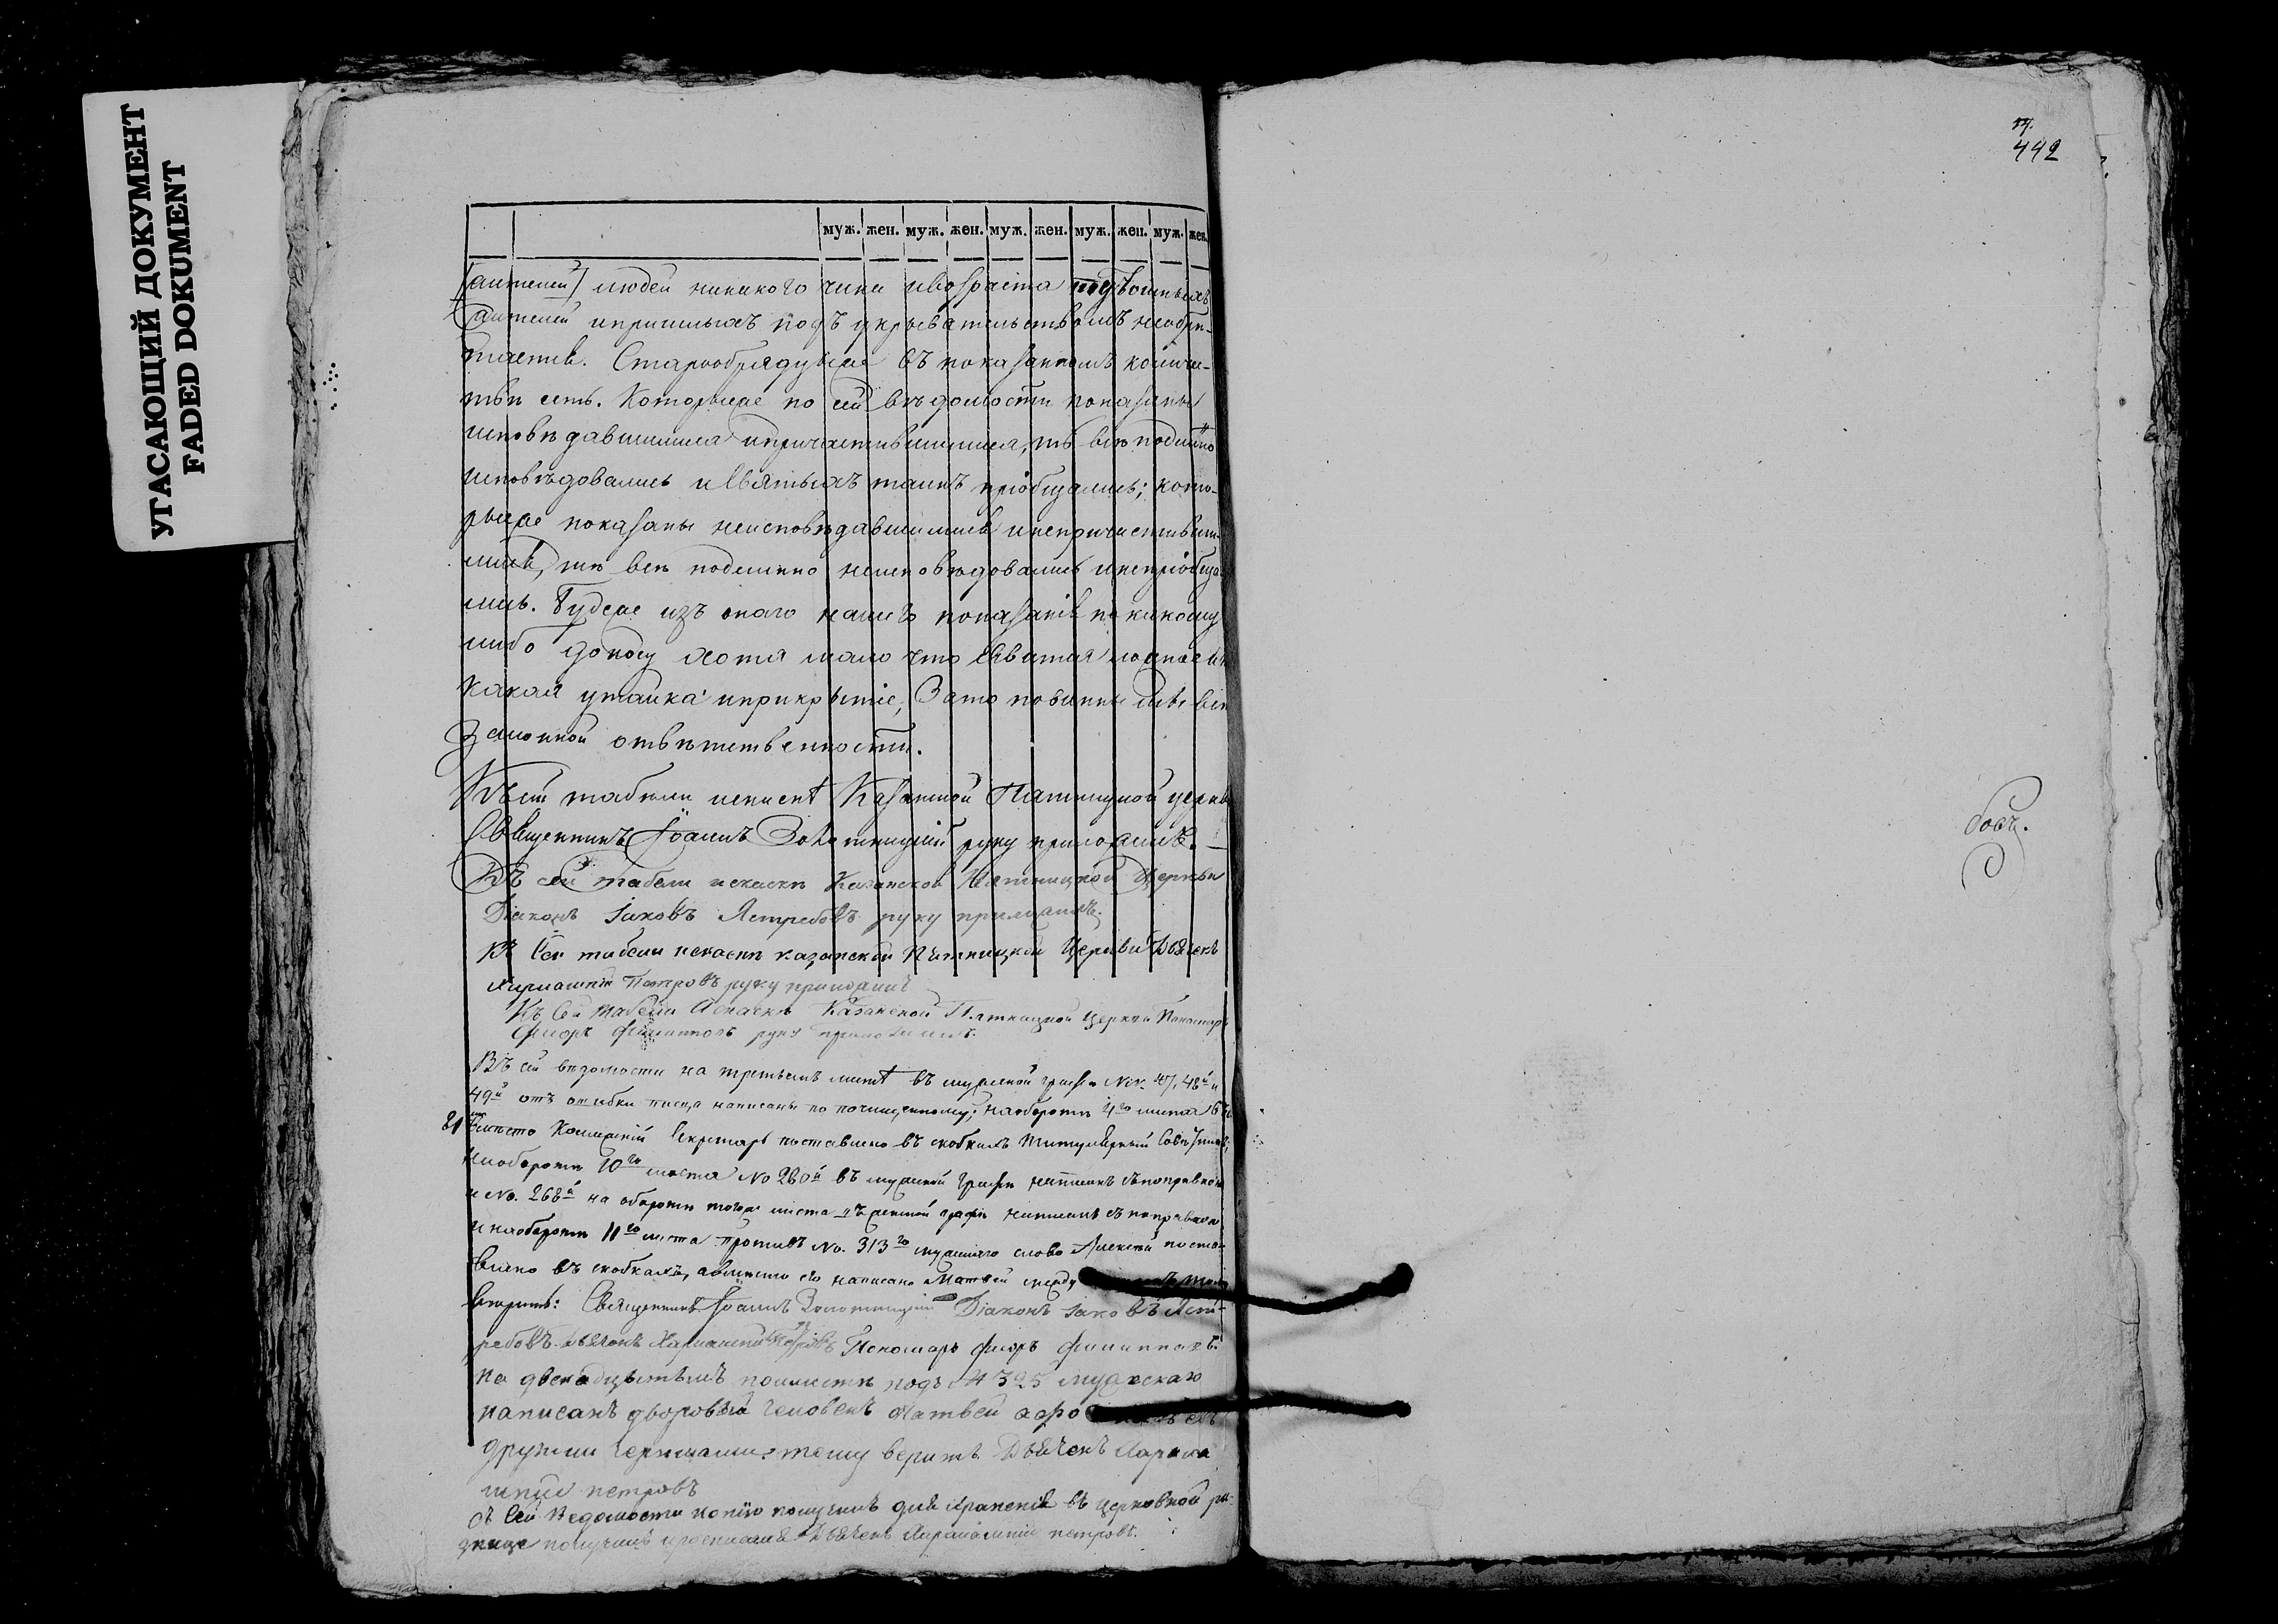 УГАСАЮЩИЙ ДОКУМЕНТ
FADED DOKUMENT
муж. жен. муж. жен. муж. жен. муж. жен. муж. жен.
людей никакого чина
и пришлыхъ подъ укрывательствомъ необрѣ-
тается. Старообрядцы же въ показанномъ количе-
ствѣ есть. Которые же по сей вѣдомости показаны
исповѣдавшимися и причастившимися, тѣ всѣ подлинно
исповѣдовались и Святыхъ таинъ пріобщались; кото-
рые же показаны неисповѣдавшимися и непричастивши-
мися, тѣ всѣ подлинно неисповѣдовались и непріобща-
лись. Буде же изъ онаго нашего показанія по какому
либо доносу хотя мало что
какая утайка и прикрытіе, За то повинны
законной отвѣтственности.
Къ сей табели и сказкѣ Казанской Пятницкой церкви
Священникъ Іоаннъ Золотницкій руку приложилъ.
Къ сей табели и сказкѣ Казанской Пятницкой Церкви
Діаконъ Іаковъ Ястребовъ руку приложилъ.
Къ Сей табели и сказкѣ казанской Пятницкой Церкви Дьячекъ
Харлампій Петровъ руку приложилъ
Къ Сей табели и сказкѣ Казанской Пятницкой Церкви Пономарь
Флоръ Филипповъ руку приложилъ.
Въ сей вѣдомости на третьемъ листѣ въ мужской графѣ 47, 48й и
49й отъ ошибки писца написаны по почищенному; на оборотѣ 4го листа
вмѣсто Коллежскій Секретарь поставлено въ скобкахъ Титулярный Совѣтникъ;
на оборотѣ 10го листа No 260й въ мужской графѣ написанъ съ поправкою
и No. 268й на оборотѣ того же листа въ женской графѣ написанъ съ поправкою
и на оборотѣ 11го листа противъ No. 313го мужскаго слово Алексѣй поста-
влено въ скобкахъ, а вмѣсто его написано Матвей
вѣрить: Священникъ Іоаннъ Золотницкій Діаконъ Іаковъ Яст-
ребовъ Дьячекъ Харлампій Петровъ Пономарь Флоръ Филипповъ.
на двенадцатымъ полистѣ подъ № 325 мужскаго
написанъ дворовый человекъ Матвей
другими чернилами: тому веритъ Дьячекъ Харла
мпій петровъ
съ Сей Ведомости копію получилъ для храненія въ церковной ри-
знице получилъ и росписался Дьячекъ Харлампій петровъ.
442